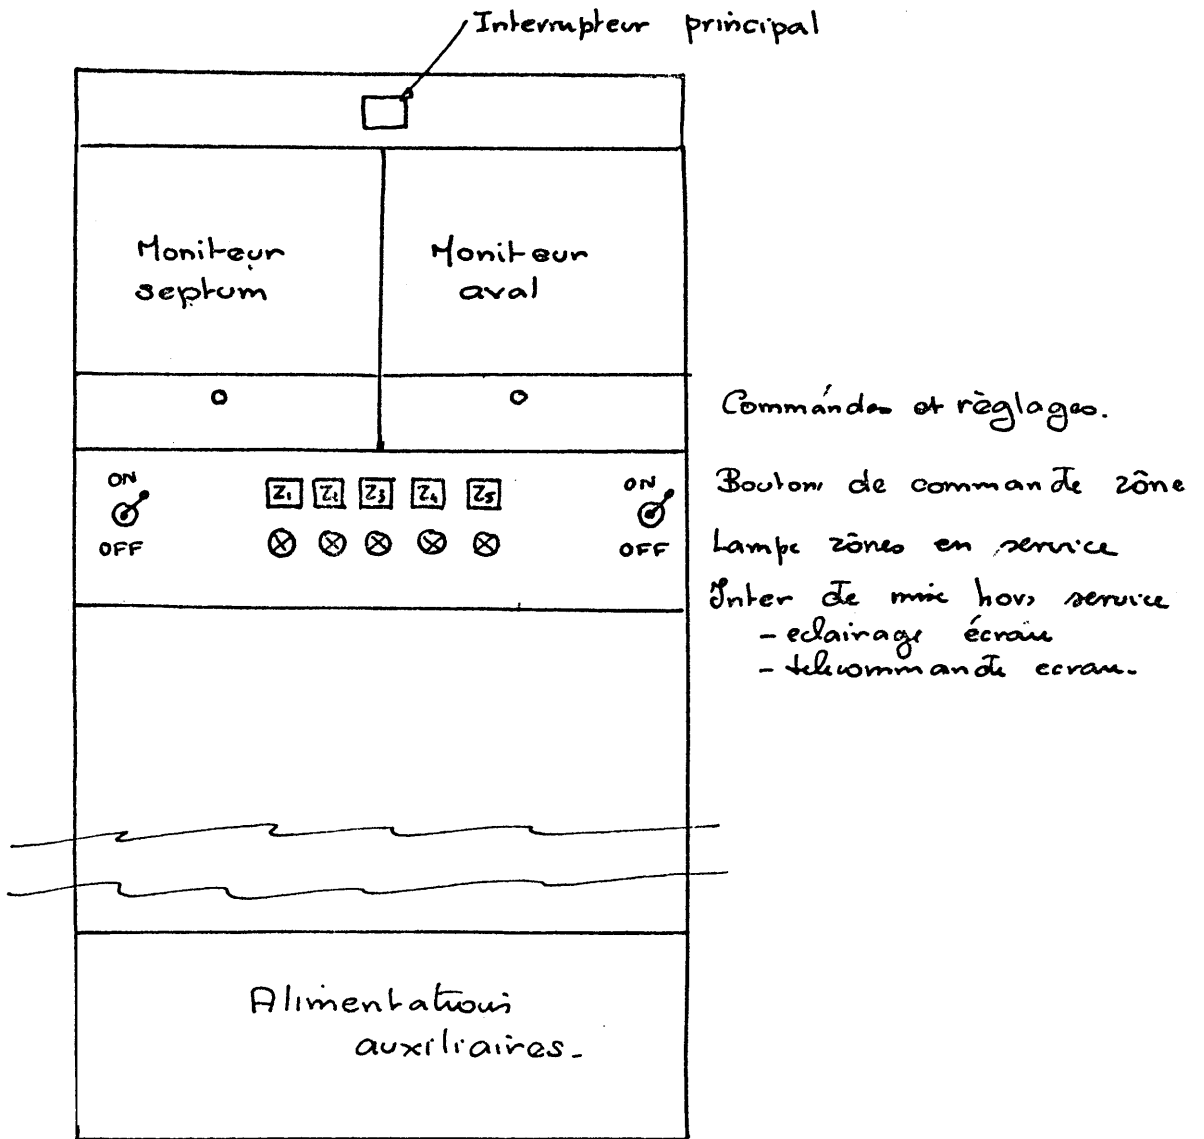 Interrupteur principal
Moniteur septum
Moniteur aval
Commandes et règlages.
ON
Z1 Z2 Z3 Z4 Z5
ON
Boutons de commande zône
OFF
OFF
Lampe zônes en service
Inter de mise hors service
- eclairage écran
- telecommande ecran.
Alimentations
auxiliaires.